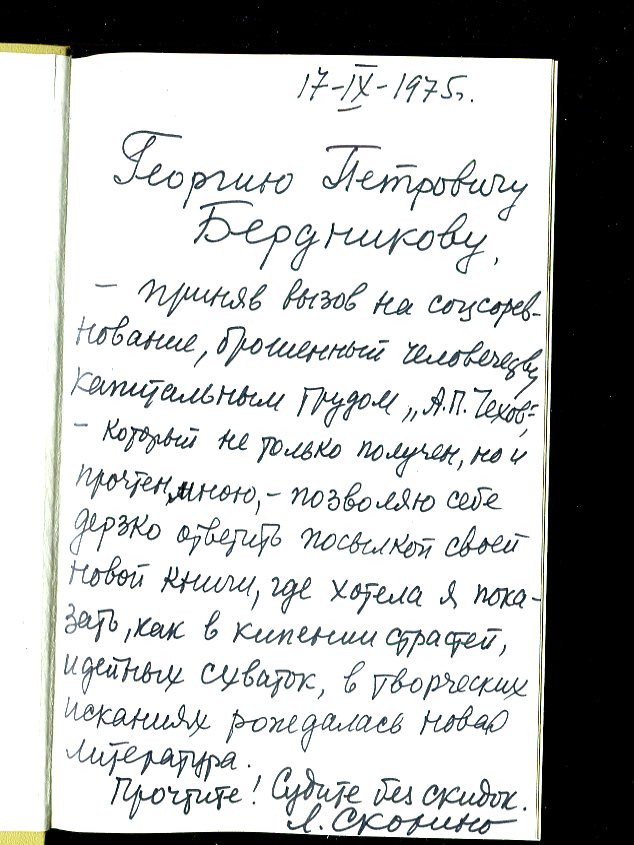 17-IX-1975г.
Георгию Петровичу
Бердникову,
– приняв вызов на соцсорев-
нование, брошенный человечеству
капитальным трудом „А.П. Чехов",
– который не только получен, но и
прочтен мною, – позволяю себе
дерзко ответить посылкой своей
новой книги, где хотела я пока-
зать, как в кипении страстей,
идейных схваток, в творческих
исканиях рождалась новая
литература.
Прочтите! Судите без скидок.
Л. Скорино